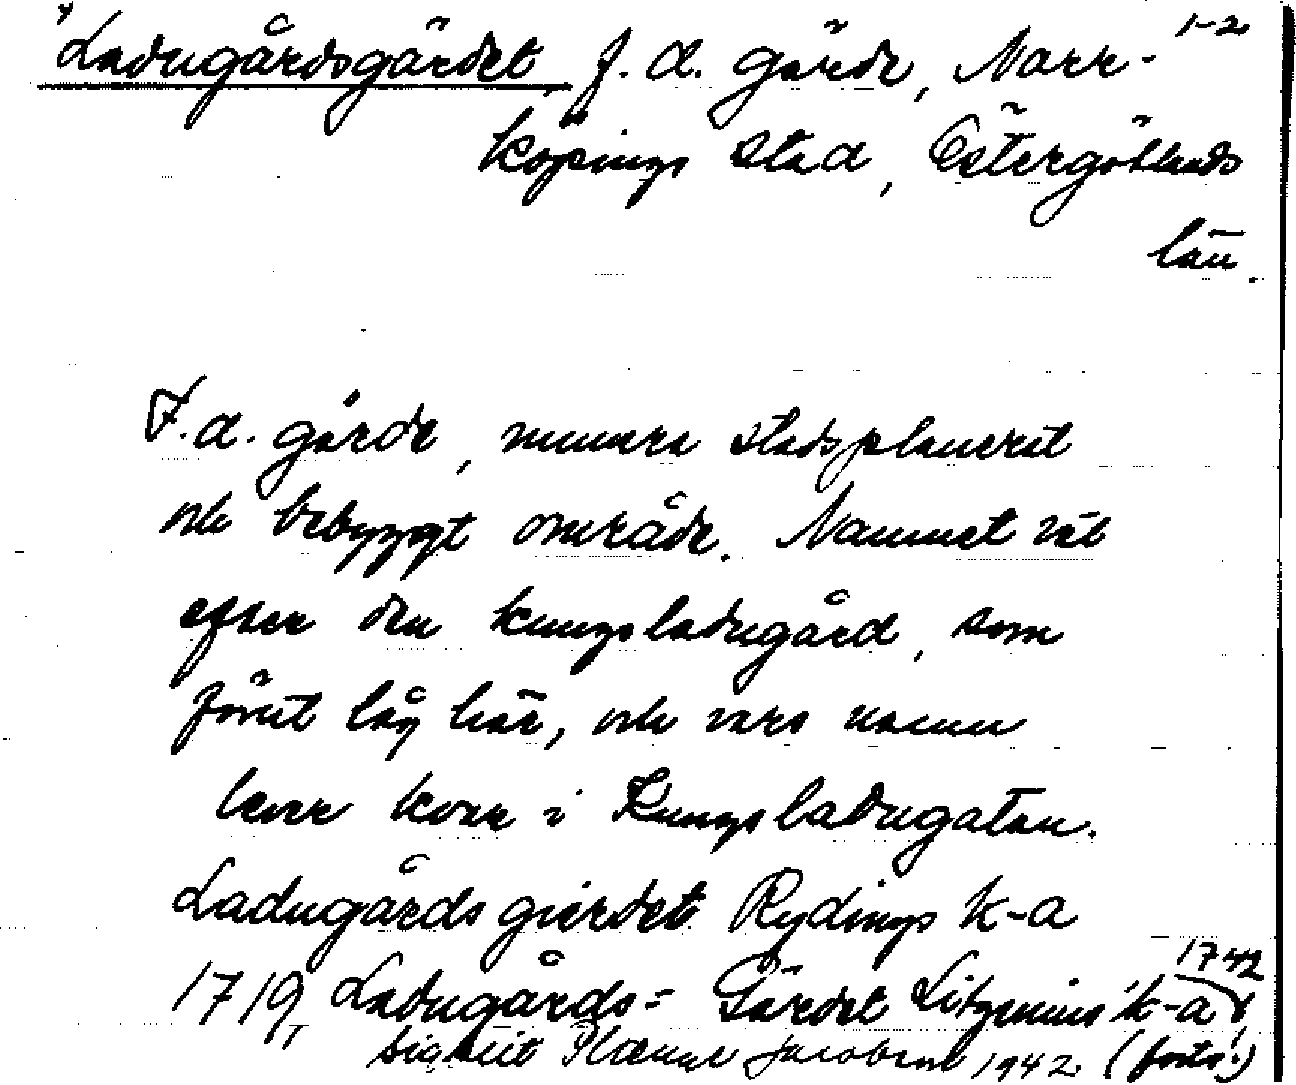 Ladugårdsgärdet f. d. gärde, Norr- 1-2
köpings stad, Östergötlands
län.
F. d. gärde, numera stadsplanerat
och bebyggt område. Namnet väl
efter den kungsladugård, som
förut låg här, och vars namn
lever kvar i Kungsladugatan.
Ladugårds gierdet Rydings k-a
1719, Ladugårds= Gärdet Litzenius' k-a 1742
Sigheit Plænge Jacobson 1942 (forts.)